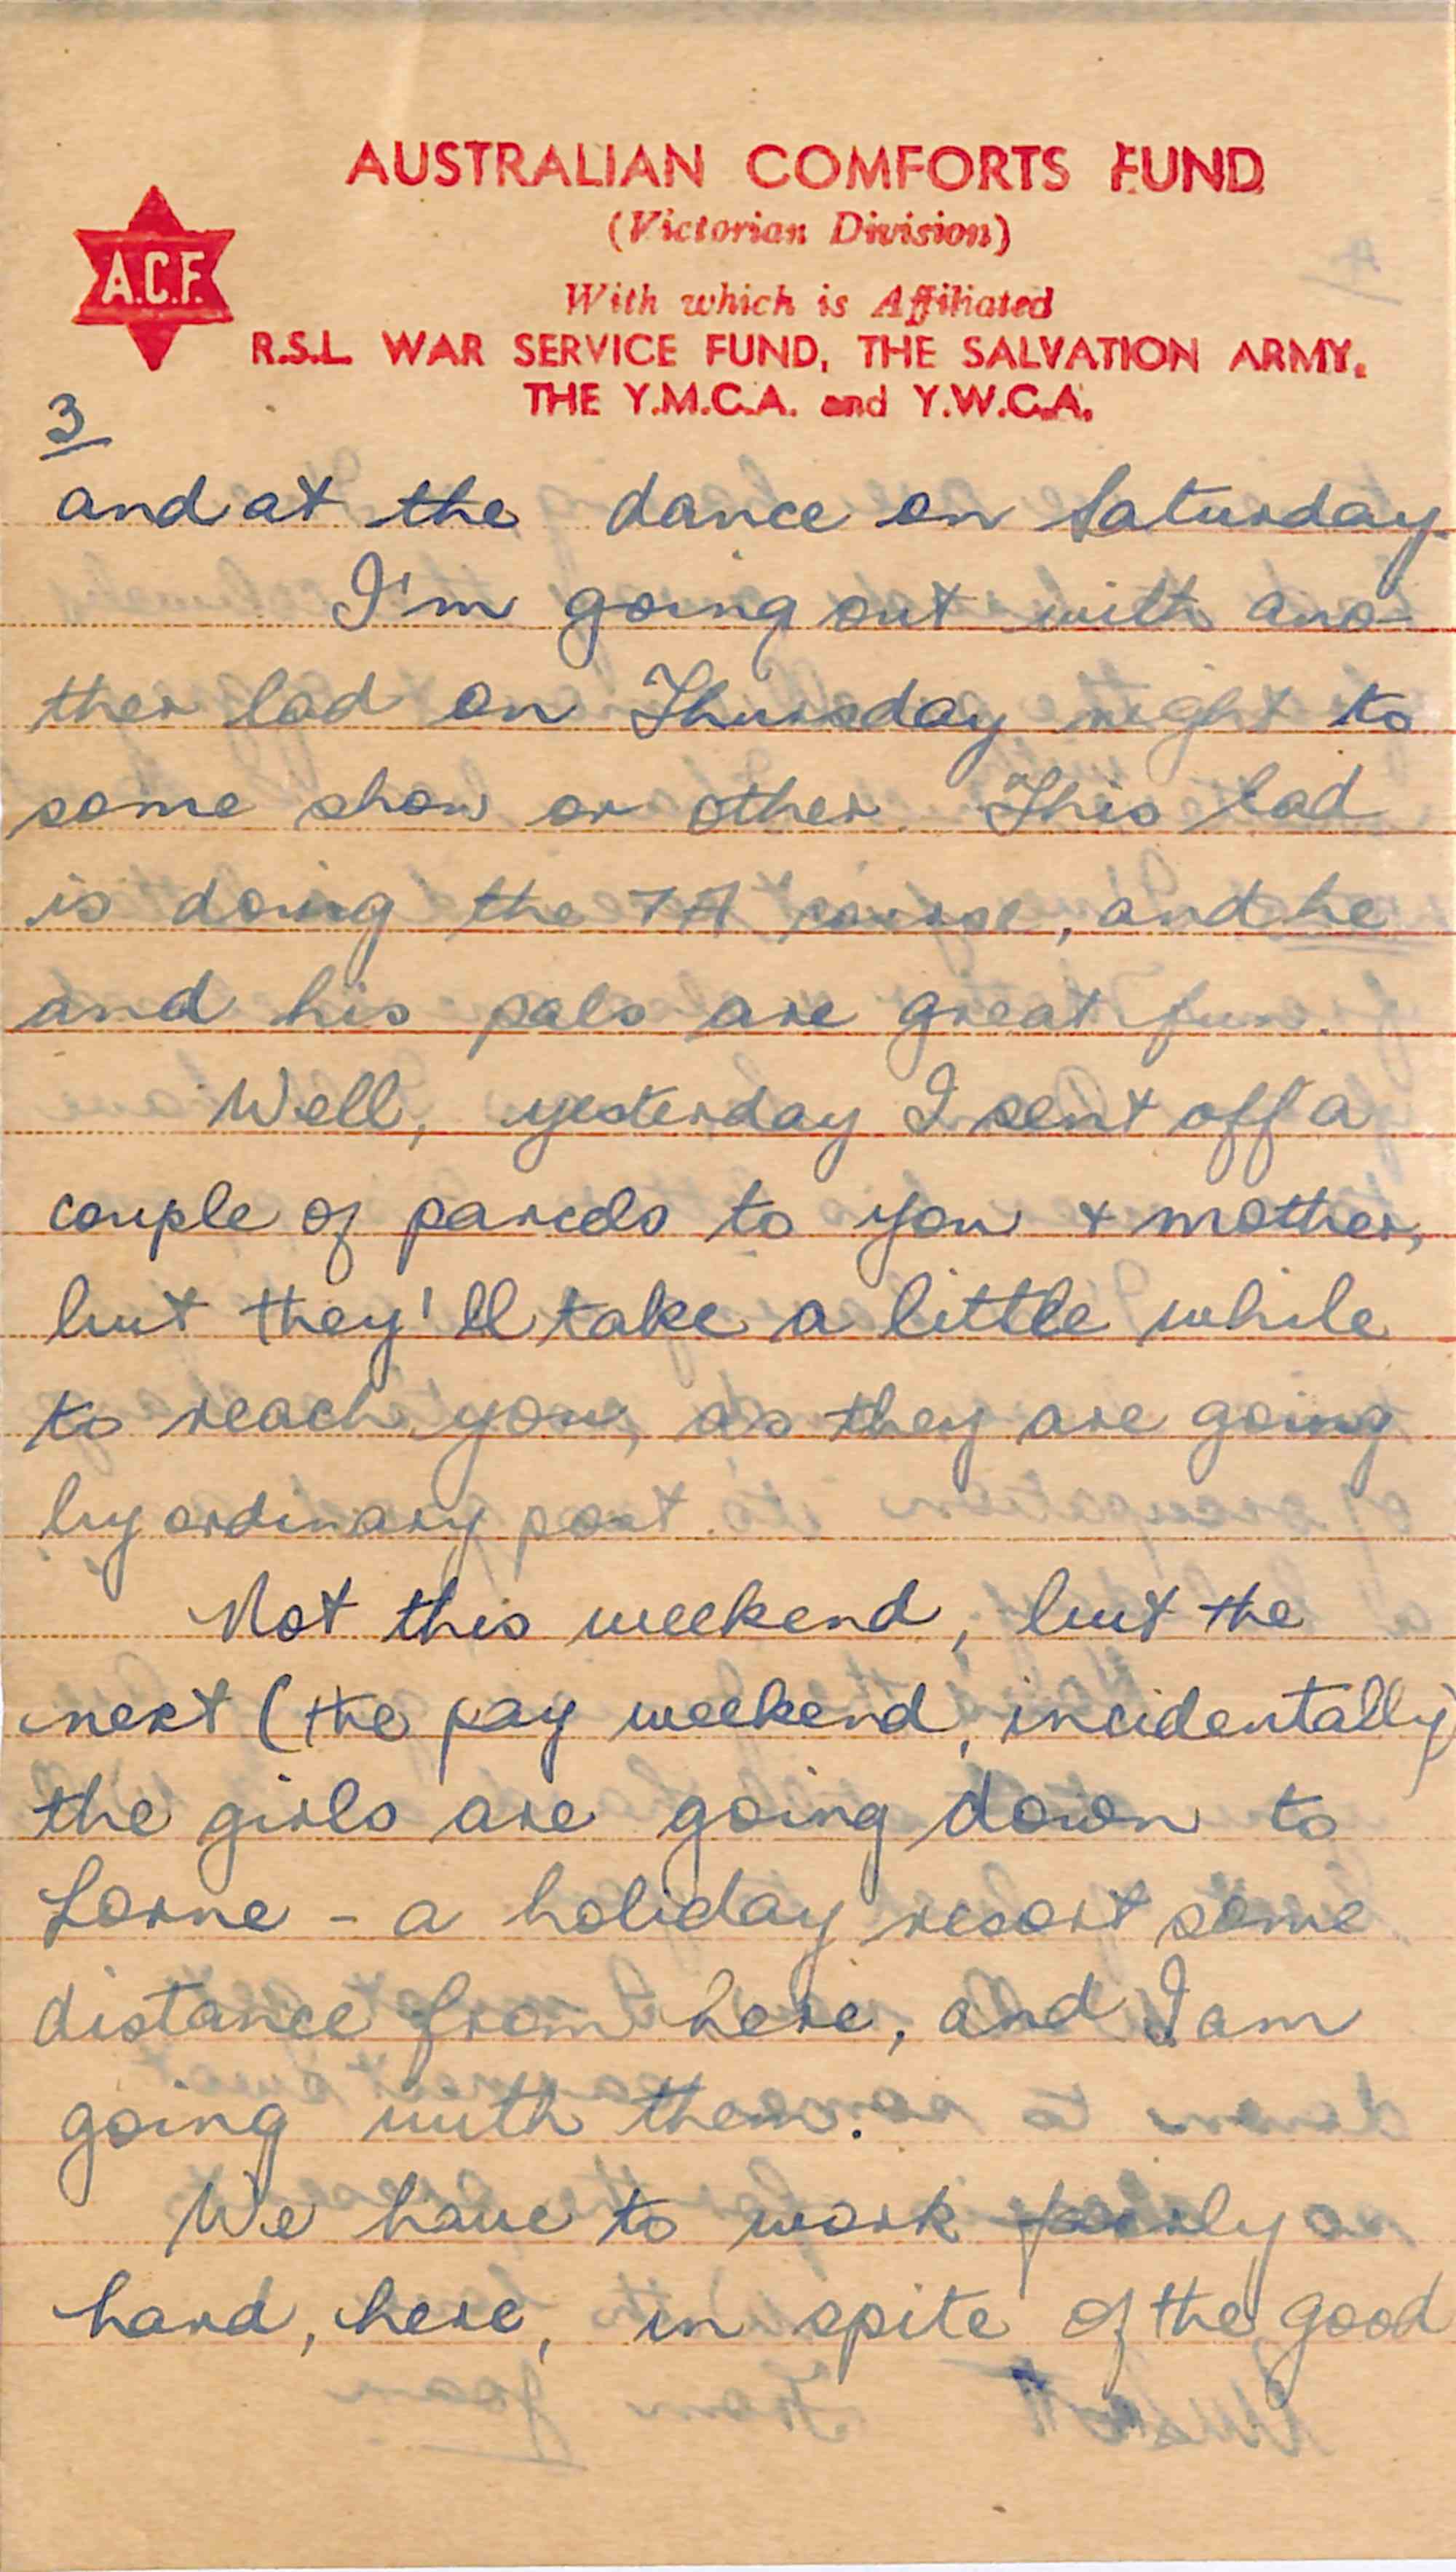 AUSTRALIAN COMFORTS FUND
(Victorian Division)
With which is Affiliated
A.C.F.
R.S.L. WAR SERVICE FUND, THE SALVATION ARMY,
THE Y.M.C.A. and Y.W.C.A.
3
and at the dance on Saturday.
I'm going out with ano-
ther lad on Thursday night to
some show or other. This lad
is doing the 7A course, and he
and his pals are great fun.
Well, yesterday I sent off a
couple of parcels to you & mother,
but they'll take a little while
to reach you, as they are going
by ordinary post.
Not this weekend, but the
next (the pay weekend, incidentally)
the girls are going down to
Lorne - a holiday resort some
distance from here, and I am
going with them.
We have to work fairly
hard, here, in spite of the good